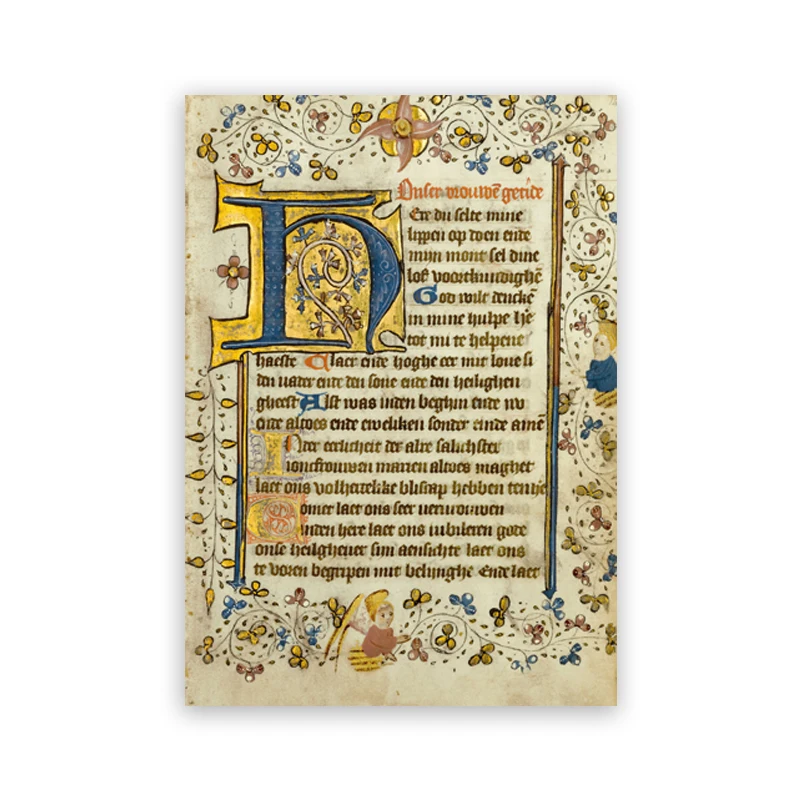 Onser vrouwē getide
HEre du selte mine
lippen op doen ende
mijn mont sel dine
lof voortkundighē
God wilt dencken
in mine hulpe he
tot mi te helpene
haeste Glaer ende hoghe eer mit loue si
den uader ente den sone ente den heilighen
gheest Alst was inden beghin ende nv
ende altoes ende eweliken sonder einde amē
In der eerlicheit der alre salichster
ioncfrouwen marien altoes maghet
laet ons volhertelike bliscap hebben ten he
Comet laet ons seer verurouwen
inden here laet ons iubileren gode
onse heilgheuer sijn aensichte laet ons
te voren begripen mit belijnghe Ende laet